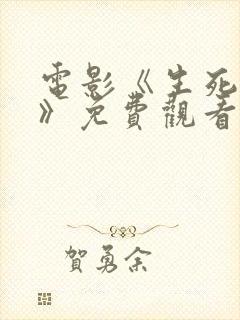 電影《生死
》免費觀看
賀勇余